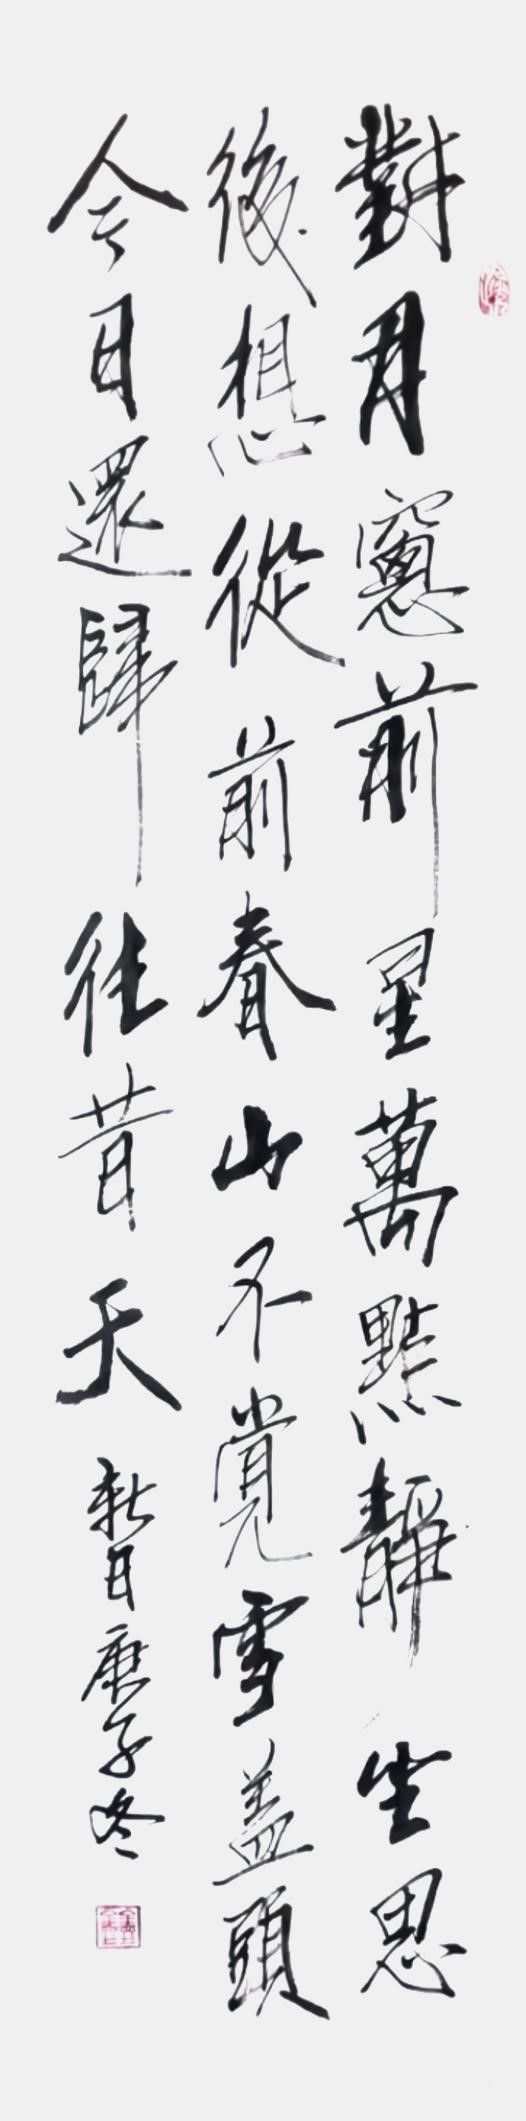 對月窻前星萬點靜坐思
後想從前春山不覺雪盖頭
今日還歸往昔天 庚子冬